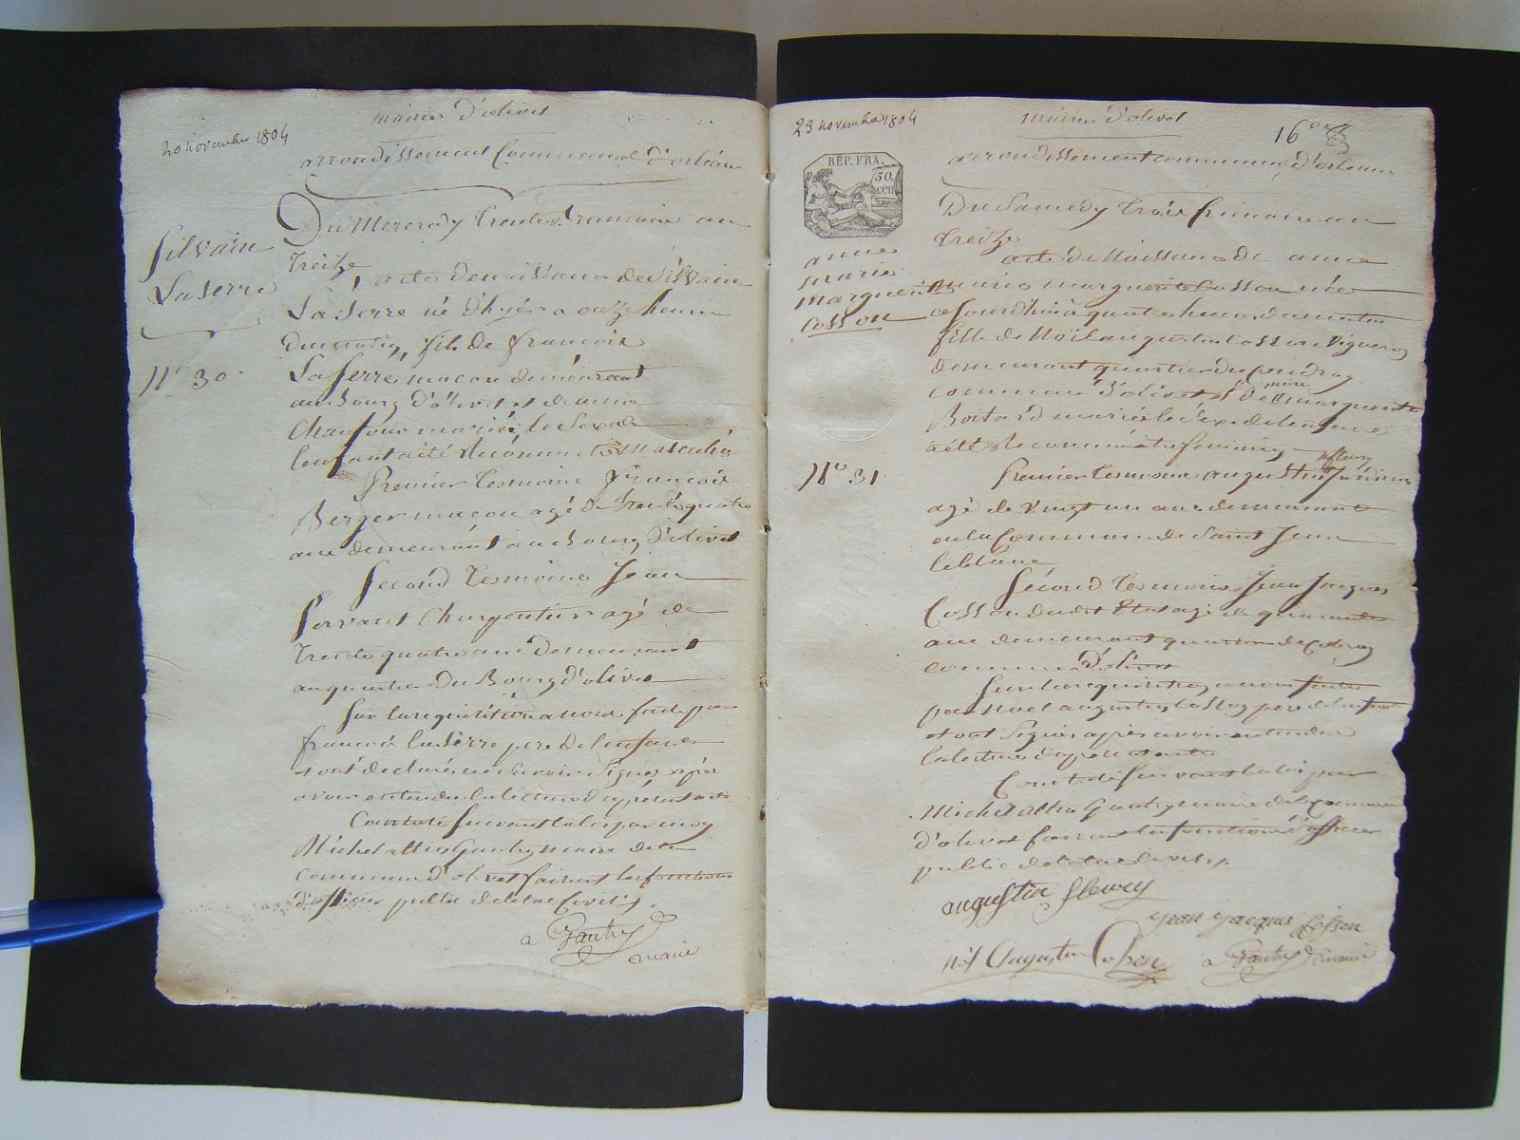 mairie d'olivet
20 novembre 1804
arrondissement Communal d'orléans
Du Mercredy trente Brumaire an
treize, acte de naissance de Silvain
Silvain
Laserre
N° 30
La Serre né d'hyer a onze heure
du matin, fils de francois
La ferre macon demeurant
au bourg d'olivet et de anne
mariés le Sexe de
lenfant a été reconnu masculin
Premier tesmoins francois
Berger macon agé de trente quatre
ans demeurant au bourg d'olivet
Second tesmoins Jean
Servant Charpentier agé de
trente quatre ans demeurant
au quartier Du Bourg d'olivet
Sur la requisition a nous faite par
francois laserre pere de lenfant
et ont déclaré ne savoir Signer après
avoir entendu la lecture du présent acte
Constaté suivant la loi par moy
Michel Gautry maire de la
commune d'olivet faisant les fonctions
d'officier public de létat Civil
a Gautry
maire
mairie d'olivet
23 novembre 1804
16
REP. FRA.
50
CEN
arrondissement communal d'orleans
Du Samedy trois frimaire an
treize
acte de Naissance de anne
anne
marie
marguerite
Cosson
N° 31
marie marguerite Cosson née
ce jourdhui a quatre heure du matin
fille de Noël augustin Cosson Vigneron
demeurant quartier du
commune d'olivet et de marguerite
mariés le sexe de lenfant
a été reconnu feminin
fleury
Premier tesmoins augustin
agé de vingt un ans demeurant
en la Commune de Saint Jean
leblanc
Second tesmoins Jean Jacques
Cosson agé de quarante
ans demeurant quartier de
commune d'olivet
Sur la requisition a nous faite
par Noel augustin Cosson pere de lenfant
et ont Signer après avoir entendu
la lecture du présent acte
Constaté suivant la loi par
Michel Gautry maire de la commune
d'olivet faisant les fonctions d'officier
public de létat civil
augustin fleury
jean jacques Cosson
nöl Augustin Coson
a Gautry maire